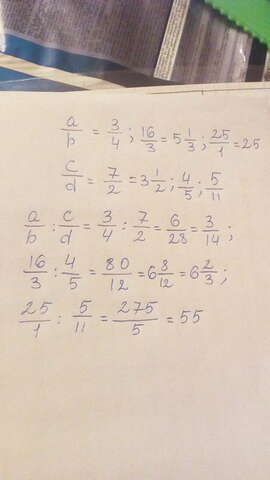 a/b = 3/4 ; 16/3 = 5 1/3 ; 25/1 = 25
c/d = 7/2 = 3 1/2 ; 4/5 ; 5/11
a/b : c/d = 3/4 : 7/2 = 6/28 = 3/14 ;
16/3 : 4/5 = 80/12 = 6 8/12 = 6 2/3 ;
25/1 : 5/11 = 275/5 = 55